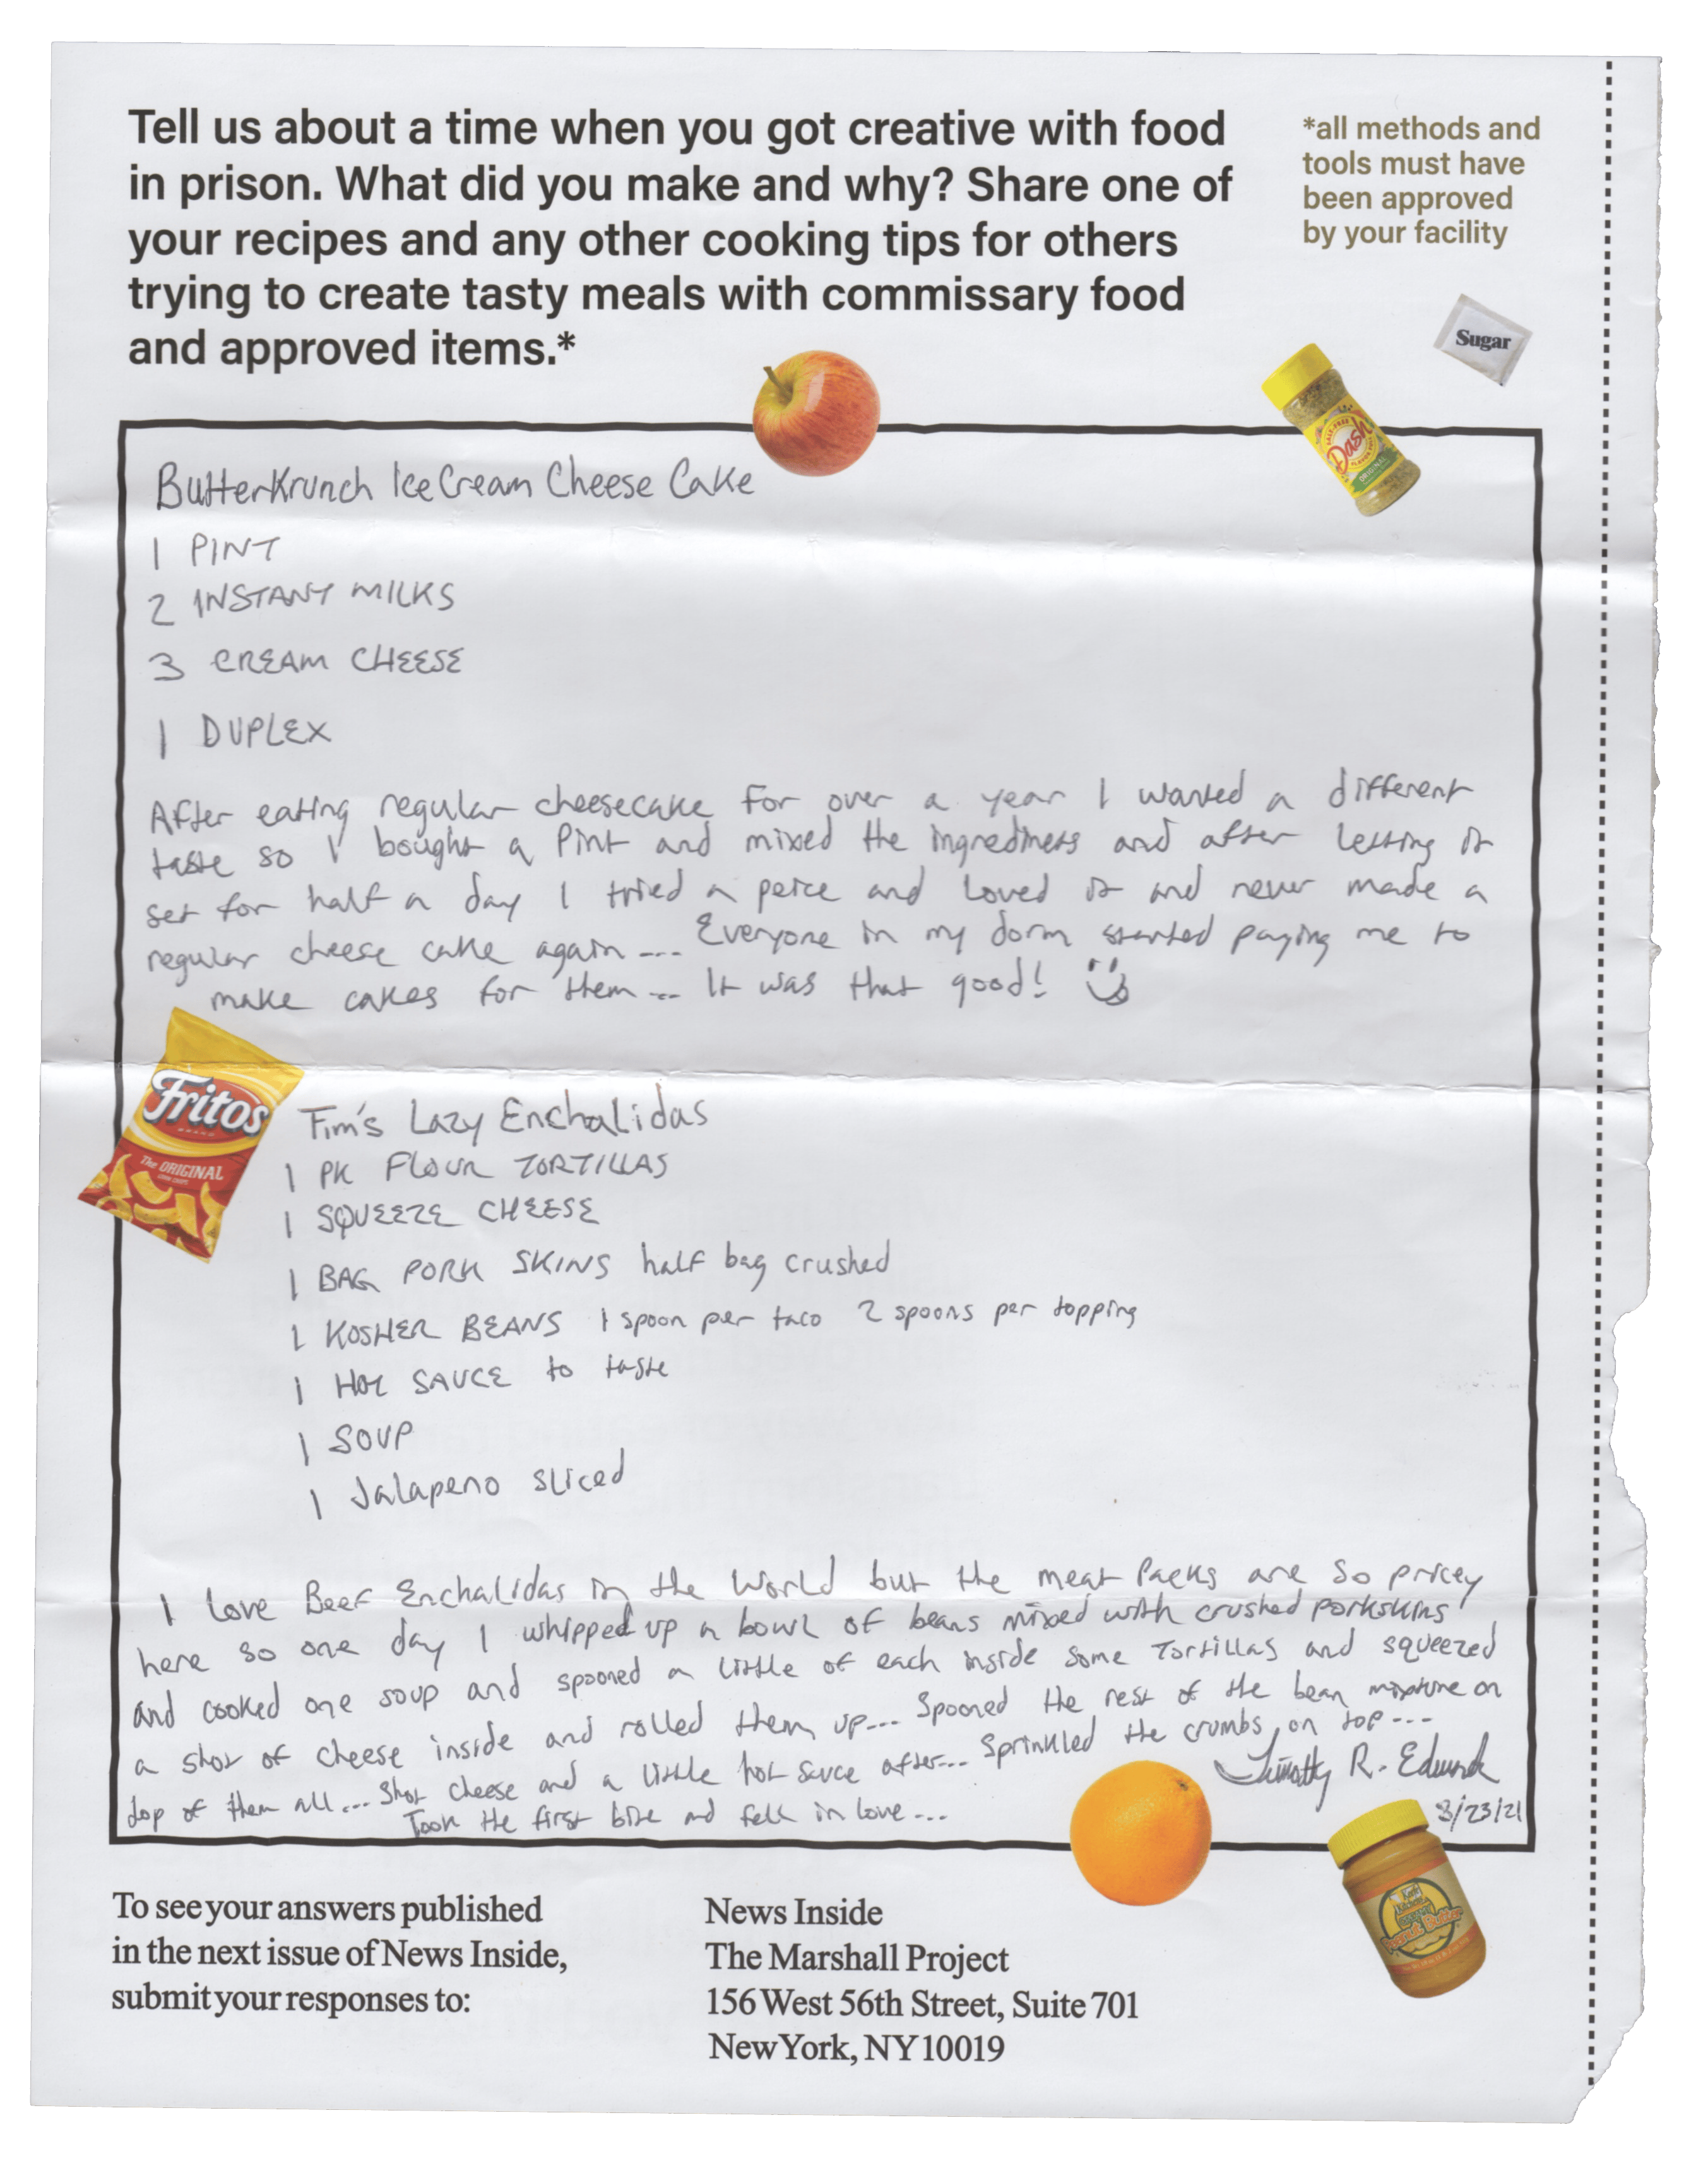 Tell us about a time when you got creative with food
in prison. What did you make and why? Share one of
your recipes and any other cooking tips for others
trying to create tasty meals with commissary food
and approved items.*
*all methods and
tools must have
been approved
by your facility
Sugar
Dash
ORIGINAL
ButterKrunch Ice Cream Cheese Cake
1 PINT
2 INSTANT MILKS
3 CREAM CHEESE
1 DUPLEX
After eating regular cheesecake for over a year I wanted a different
taste so I bought a Pint and mixed the ingrediners and after letting it
set for half a day I tried a peice and loved it and never made a
regular cheese cake again.... Everyone in my dorm started paying me to
make cakes for them... It was that good!
Fritos
BRAND
The ORIGINAL
CORN CHIPS
Tim's Lazy Enchalidas
1 PK FLOUR TORTILLAS
1 SQUEEZE CHEESE
1 BAG PORK SKINS half bag crushed
1 KOSHER BEANS 1 spoon per taco 2 spoons per topping
1 HOT SAUCE to taste
1 SOUP
1 Jalapeno sliced
I Love Beef Enchalidas in the World but the meat Packs are so pricey
here so one day I whipped up a bowl of beans mixed with crushed porkskins
and cooked one soup and spooned a little of each inside some Tortillas and squeezed
a shot of cheese inside and rolled them up... Spooned the rest of the bean mixture on
top of them all... Shot cheese and a little hot sauce after... Sprinkled the crumbs on top...
Took the first bite and fell in love...
Timothy R. Edwards
3/23/21
Peanut Butter
To see your answers published
in the next issue of News Inside,
submit your responses to:
News Inside
The Marshall Project
156 West 56th Street, Suite 701
New York, NY 10019